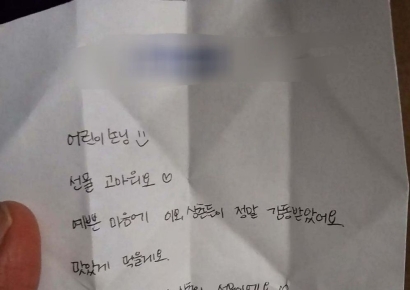 어린이 손님 :)
선물 고마워요 ♡
예쁜 마음에 이모, 삼촌들이 정말 감동받았어요
맛있게 먹을게요